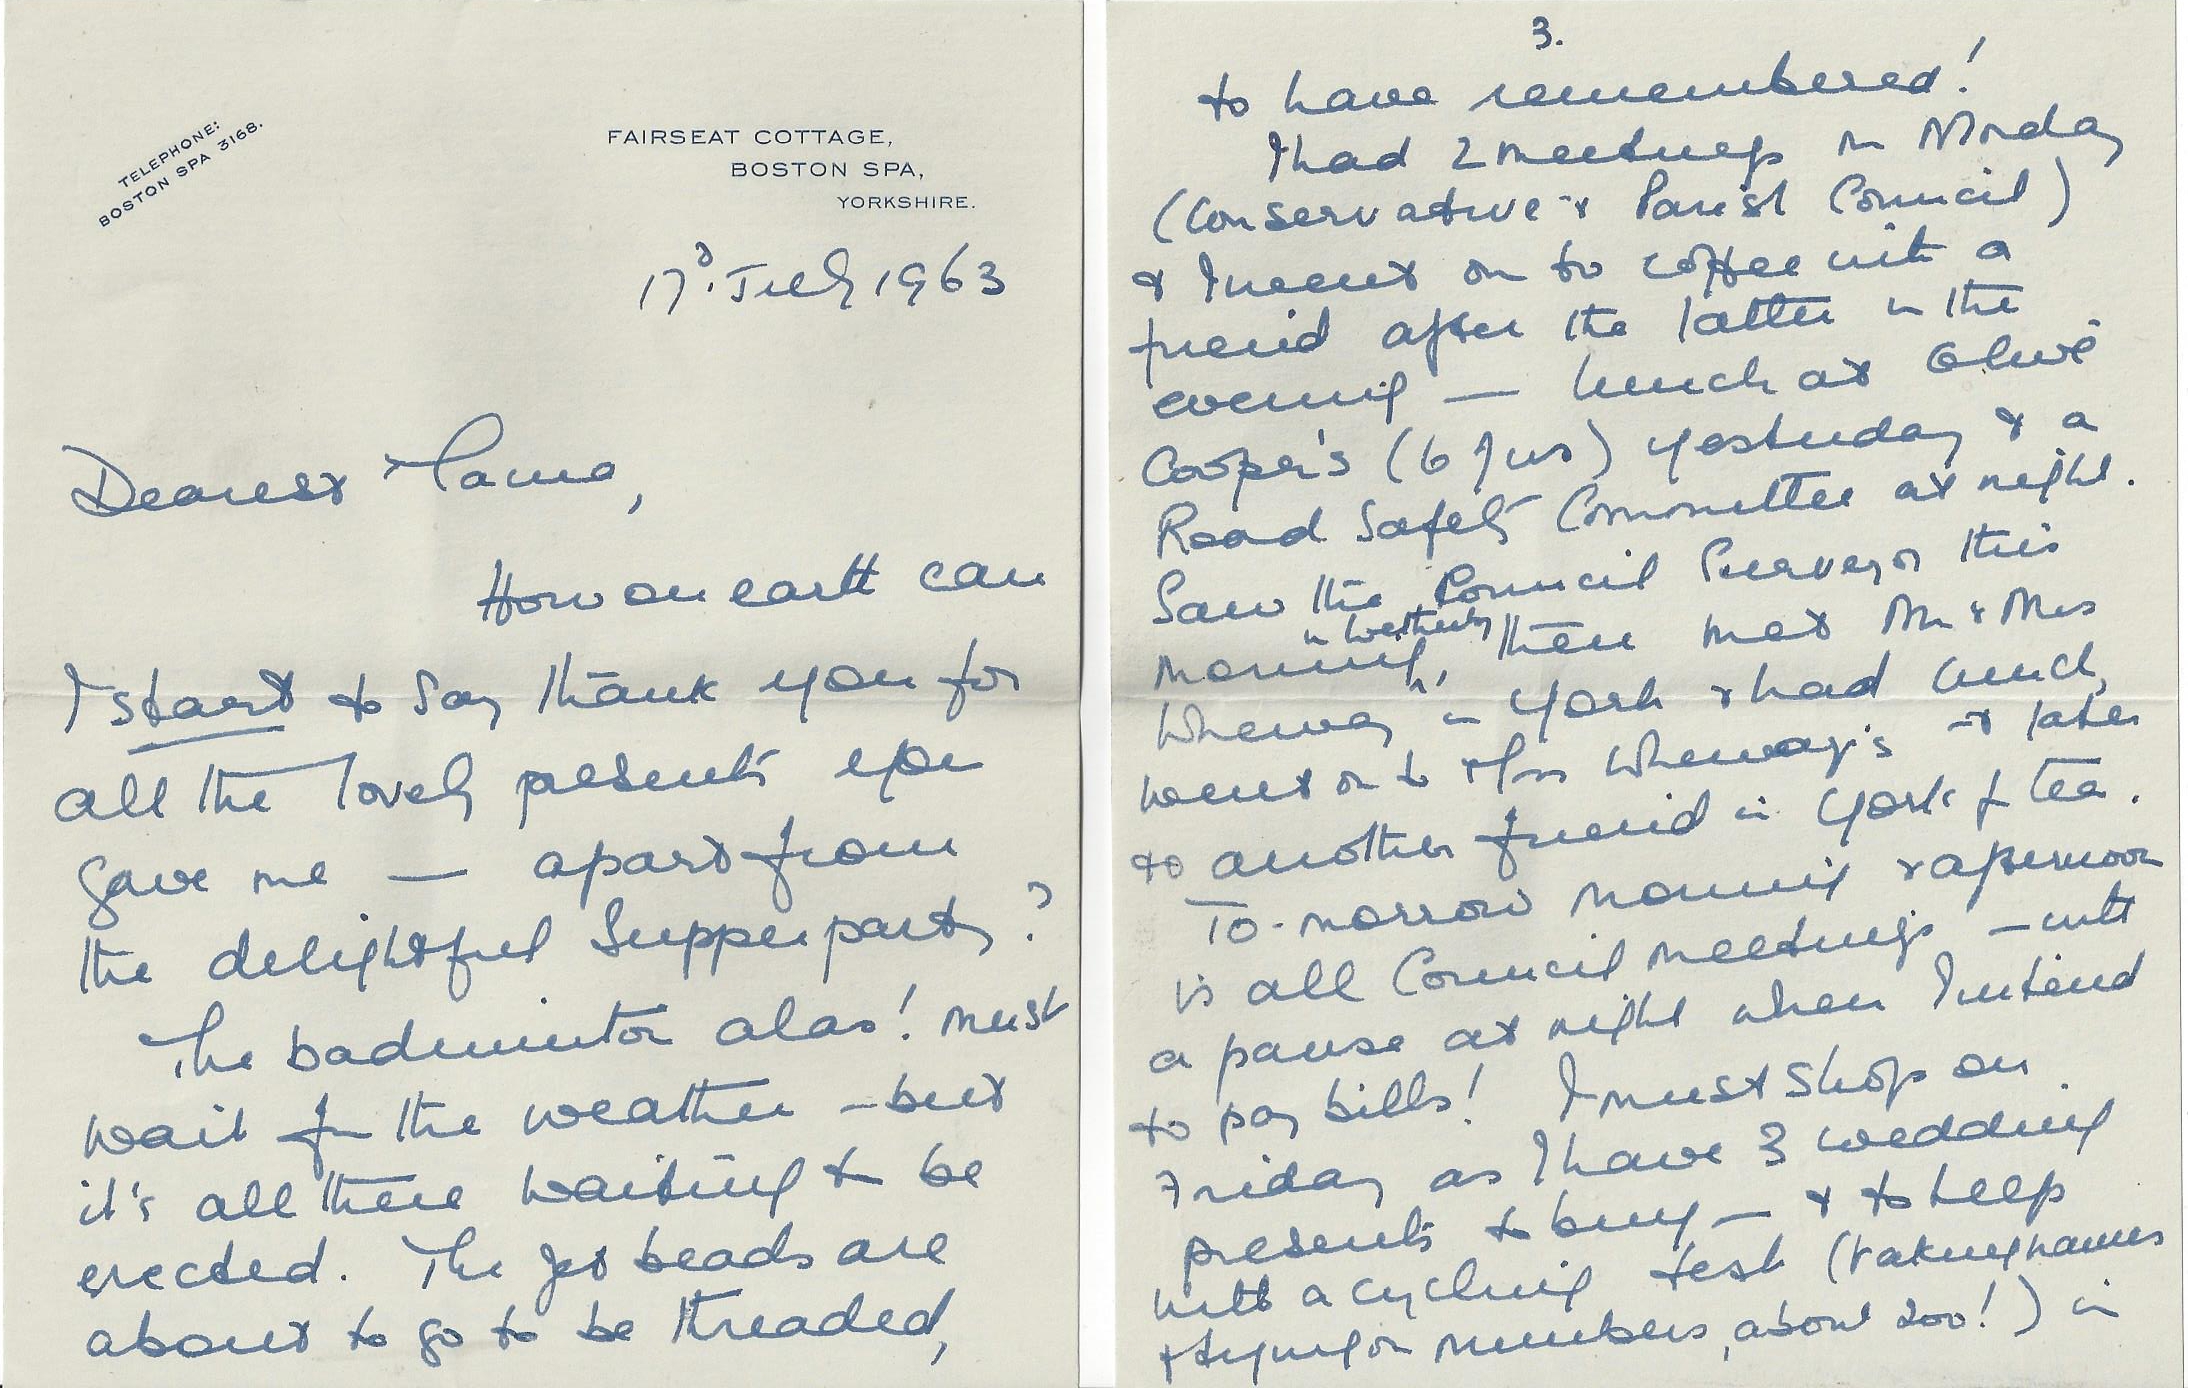 TELEPHONE:
BOSTON SPA 3168.
FAIRSEAT COTTAGE,
BOSTON SPA,
YORKSHIRE.
17th July 1963
Dearest Mama,
How on earth can
I start to say thank you for
all the lovely presents you
gave me — apart from
the delightful supper party?
The badminton alas! must
wait for the weather – but
it's all there waiting to be
erected. The jet beads are
about to go to be threaded,
3.
to have remembered!
I had 2 meetings on Monday
(Conservative & Parish Council)
& I went on to coffee with a
friend after the latter in the
evening — lunch at Olive
Cooper's (6 of us) yesterday & a
Road Safety Committee at night.
Saw the Council Surveyor this
in Wetherby
morning, then met Mr & Mrs
Whenay in York & had lunch,
went on to Mrs Whenay's & later
to another friend in York for tea.
To-morrow morning & afternoon
is all Council meetings – with
a pause at night when I intend
to pay bills! I must shop on
Friday as I have 3 wedding
presents to buy — & to help
with a cycling test (taking names
& tying on numbers, about 200!) in